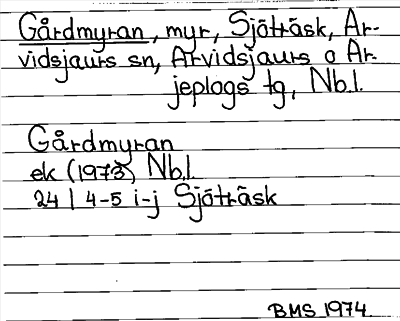 Gårdmyran, myr, Sjöträsk, Ar-
vidsjaurs sn, Arvidsjaurs o Ar-
jeplogs tg, Nb.l.
Gårdmyran
ek (1973) Nb.l.
24 I 4-5 i-j Sjöträsk
BMS 1974.